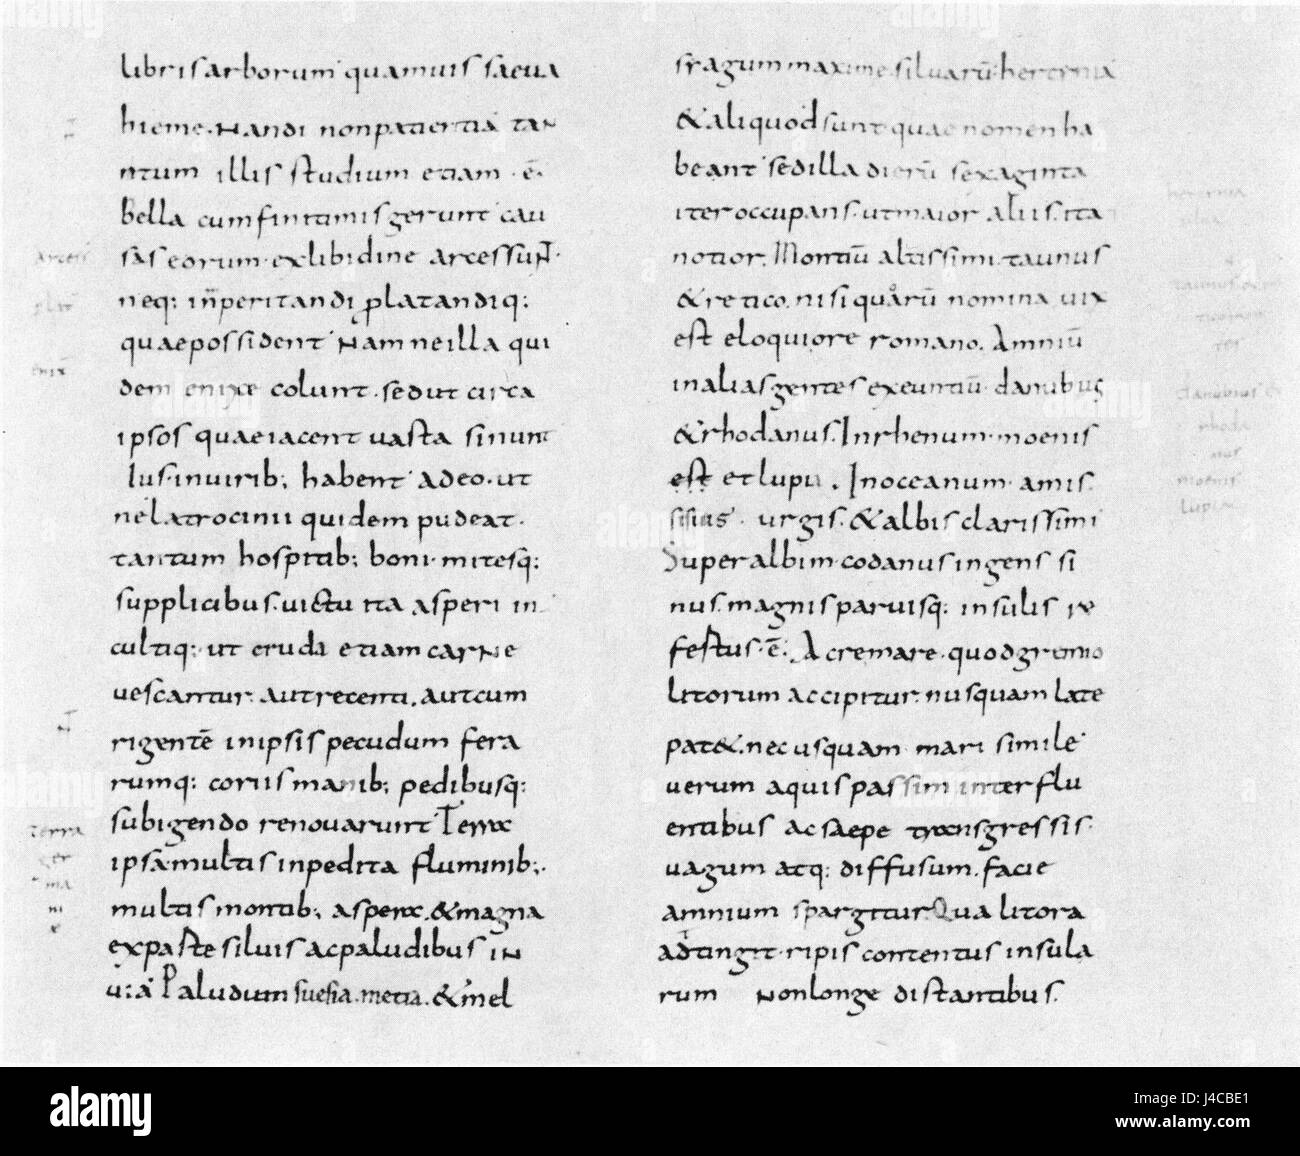 libris arborum quamuis saeua
hieme. Nandi non patientia tan
ntum illis studium etiam. ē.
Bella cum finitimis gerunt cau
sas eorum. ex libidine arcessunt.
neq: inperitandi prolatandiq:
quae possident Nam ne illa qui
dem enixe colunt. sed ut circa
ipsos quae iacent uasta sinunt
Ius. in uirib; habent adeo. ut
ne latrocinii quidem pudeat.
tantum hospitib; boni. mitesq:
supplicibus. uictu ita asperi in
cultiq: ut cruda etiam carne
uescantur. aut recenti. aut cum
rigentē in ipsis pecudum fera
rumq: coriis manib; pedibusq:
subigendo renouarunt Terrae
ipsa multis inpedita fluminib;.
multis montib; aspera. & magna
ex paste siluis ac paludibus in
u:a Paludum suesia. metia. & mel
arcess
plat
enix
terra
ger
ma
ni
sragum maxime. siluarū. hercynia
& aliquod sunt quae nomen ha
beant sed illa dierū sexaginta
iter occupans. ut maior aliis. ita
notior. Montiū altissimi. taunus
& retico. nisi quarū nomina uix
est eloqui ore romano. Amniū
in alias gentes exeuntiū. danubus
& rhodanus. In rhenum. moenis
est et lupi. In oceanum. amis.
sisius. urgis. & albis clarissimi
Super albim. codanus ingens si
nus. magnis paruisq: insulis re
festus. ē. Ac re mare. quod gremio
litorum accipitur. nusquam late
pat&. nec usquam mari simile
uerum aquis passim interflu
entibus ac saepe transgressis.
uagum atq: diffusum. facie
amnium spargitur. Qua litora
adtingit. ripis contentus insula
rum non longe distantibus.
silua
danubius &
rhoda
nus
moenis
lupia
alamy
J4CBE1
www.alamy.com